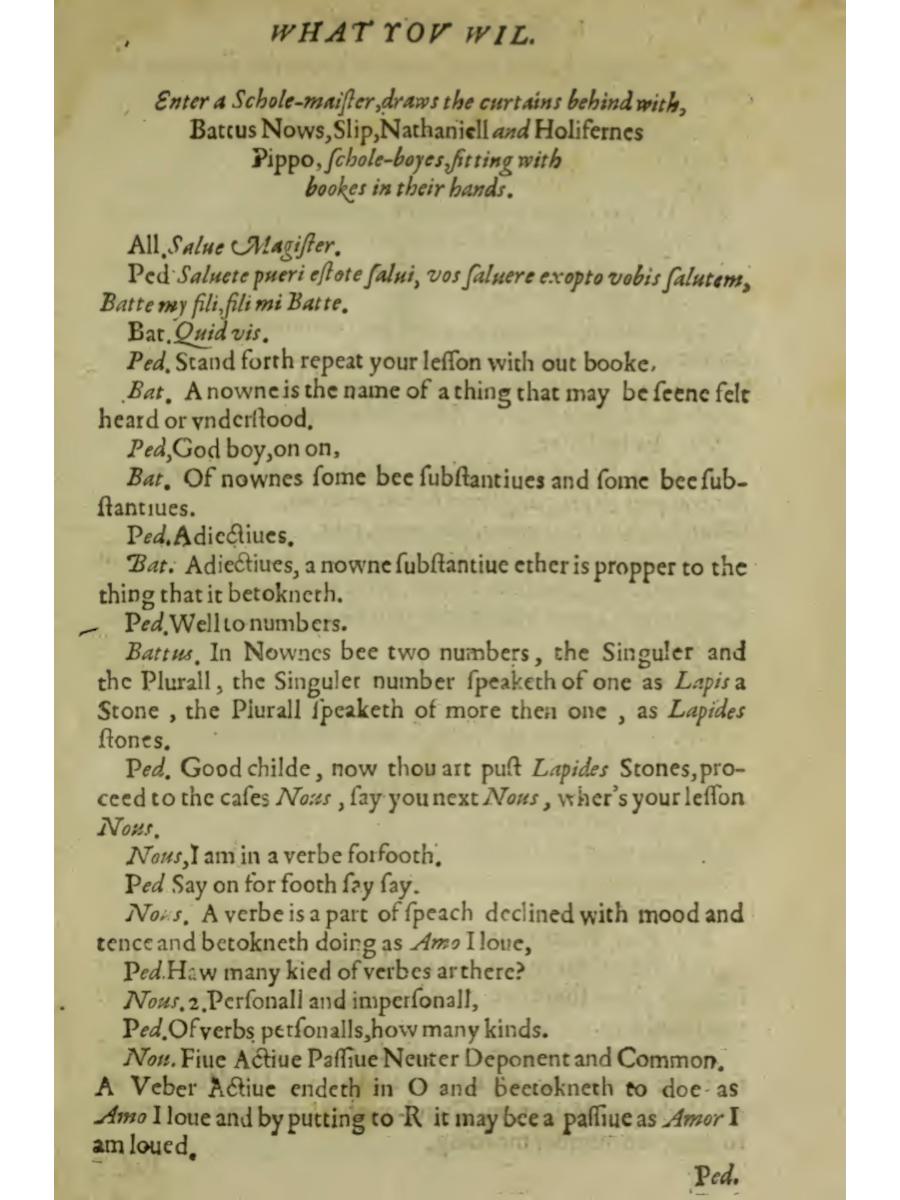 WHAT YOV WIL.
Enter a Schole-maiſter,draws the curtains behind with,
Battus Nows,Slip,Nathaniell and Holifernes
Pippo, ſchole-boyes,ſitting with
bookes in their hands.
All.Salue Magiſter.
Ped Saluete pueri eſtote ſalui, vos ſaluere exopto vobis ſalutem,
Batte my fili,fili mi Batte.
Bat.Quid vis.
Ped. Stand forth repeat your leſſon with out booke,
Bat. A nowne is the name of a thing that may be ſeene felt
heard or vnderſtood.
Ped,God boy,on on,
Bat. Of nownes ſome bee ſubſtantiues and ſome bee ſub-
ſtantiues.
Ped.Adiectiues.
Bat. Adiectiues, a nowne ſubſtantiue ether is propper to the
thing that it betokneth.
Ped.Well to numbers.
Battus. In Nownes bee two numbers, the Singuler and
the Plurall, the Singuler number ſpeaketh of one as Lapis a
Stone , the Plurall ſpeaketh of more then one , as Lapides
ſtones.
Ped. Good childe, now thou art puſt Lapides Stones,pro-
ceed to the caſes Nous , ſay you next Nous, wher's your leſſon
Nous.
Nous,I am in a verbe forſooth.
Ped Say on for footh ſay ſay.
Nous. A verbe is a part of ſpeach declined with mood and
tence and betokneth doing as Amo I loue,
Ped.Haw many kied of verbes ar there?
Nous.2.Perſonall and imperſonall,
Ped.Of verbs perſonalls,how many kinds.
Nou. Fiue Actiue Paſſiue Neuter Deponent and Common.
A Veber Actiue endeth in O and beetokneth to doe as
Amo I loue and by putting to R it may bee a paſſiue as Amor I
am loued.
Ped.